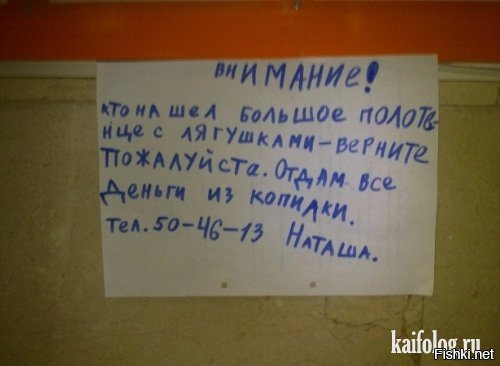 ВНИМАНИЕ!
КТО НАШЕЛ БОЛЬШОЕ ПОЛОТЕ-
НЦЕ С ЛЯГУШКАМИ – ВЕРНИТЕ
ПОЖАЛУЙСТА. ОТДАМ ВСЕ
ДЕНЬГИ ИЗ КОПИЛКИ.
ТЕЛ. 50-46-13 НАТАША.
kaifolog.ru
Fishki.net